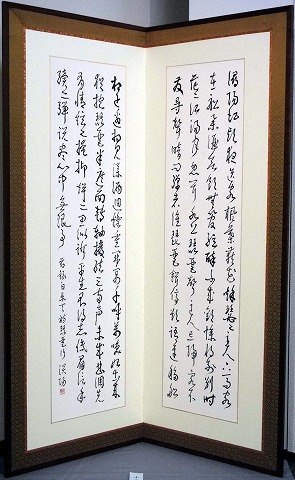 潯陽江頭夜送客楓葉荻花秋瑟々主人下馬客
在船舉酒欲飲無管絃醉不成歡慘將別別時
茫々江浸月忽聞水上琵琶聲主人忘歸客不
發尋聲暗問彈者誰琵琶聲停欲語遲移船
相近邀相見添酒迴燈重開宴千呼萬喚始出來
猶抱琵琶半遮面轉軸撥絃三兩聲未成曲調先
有情絃々掩抑聲々思似訴平生不得志低眉信手
續々彈說盡心中無限事 錄白樂天琵琶行